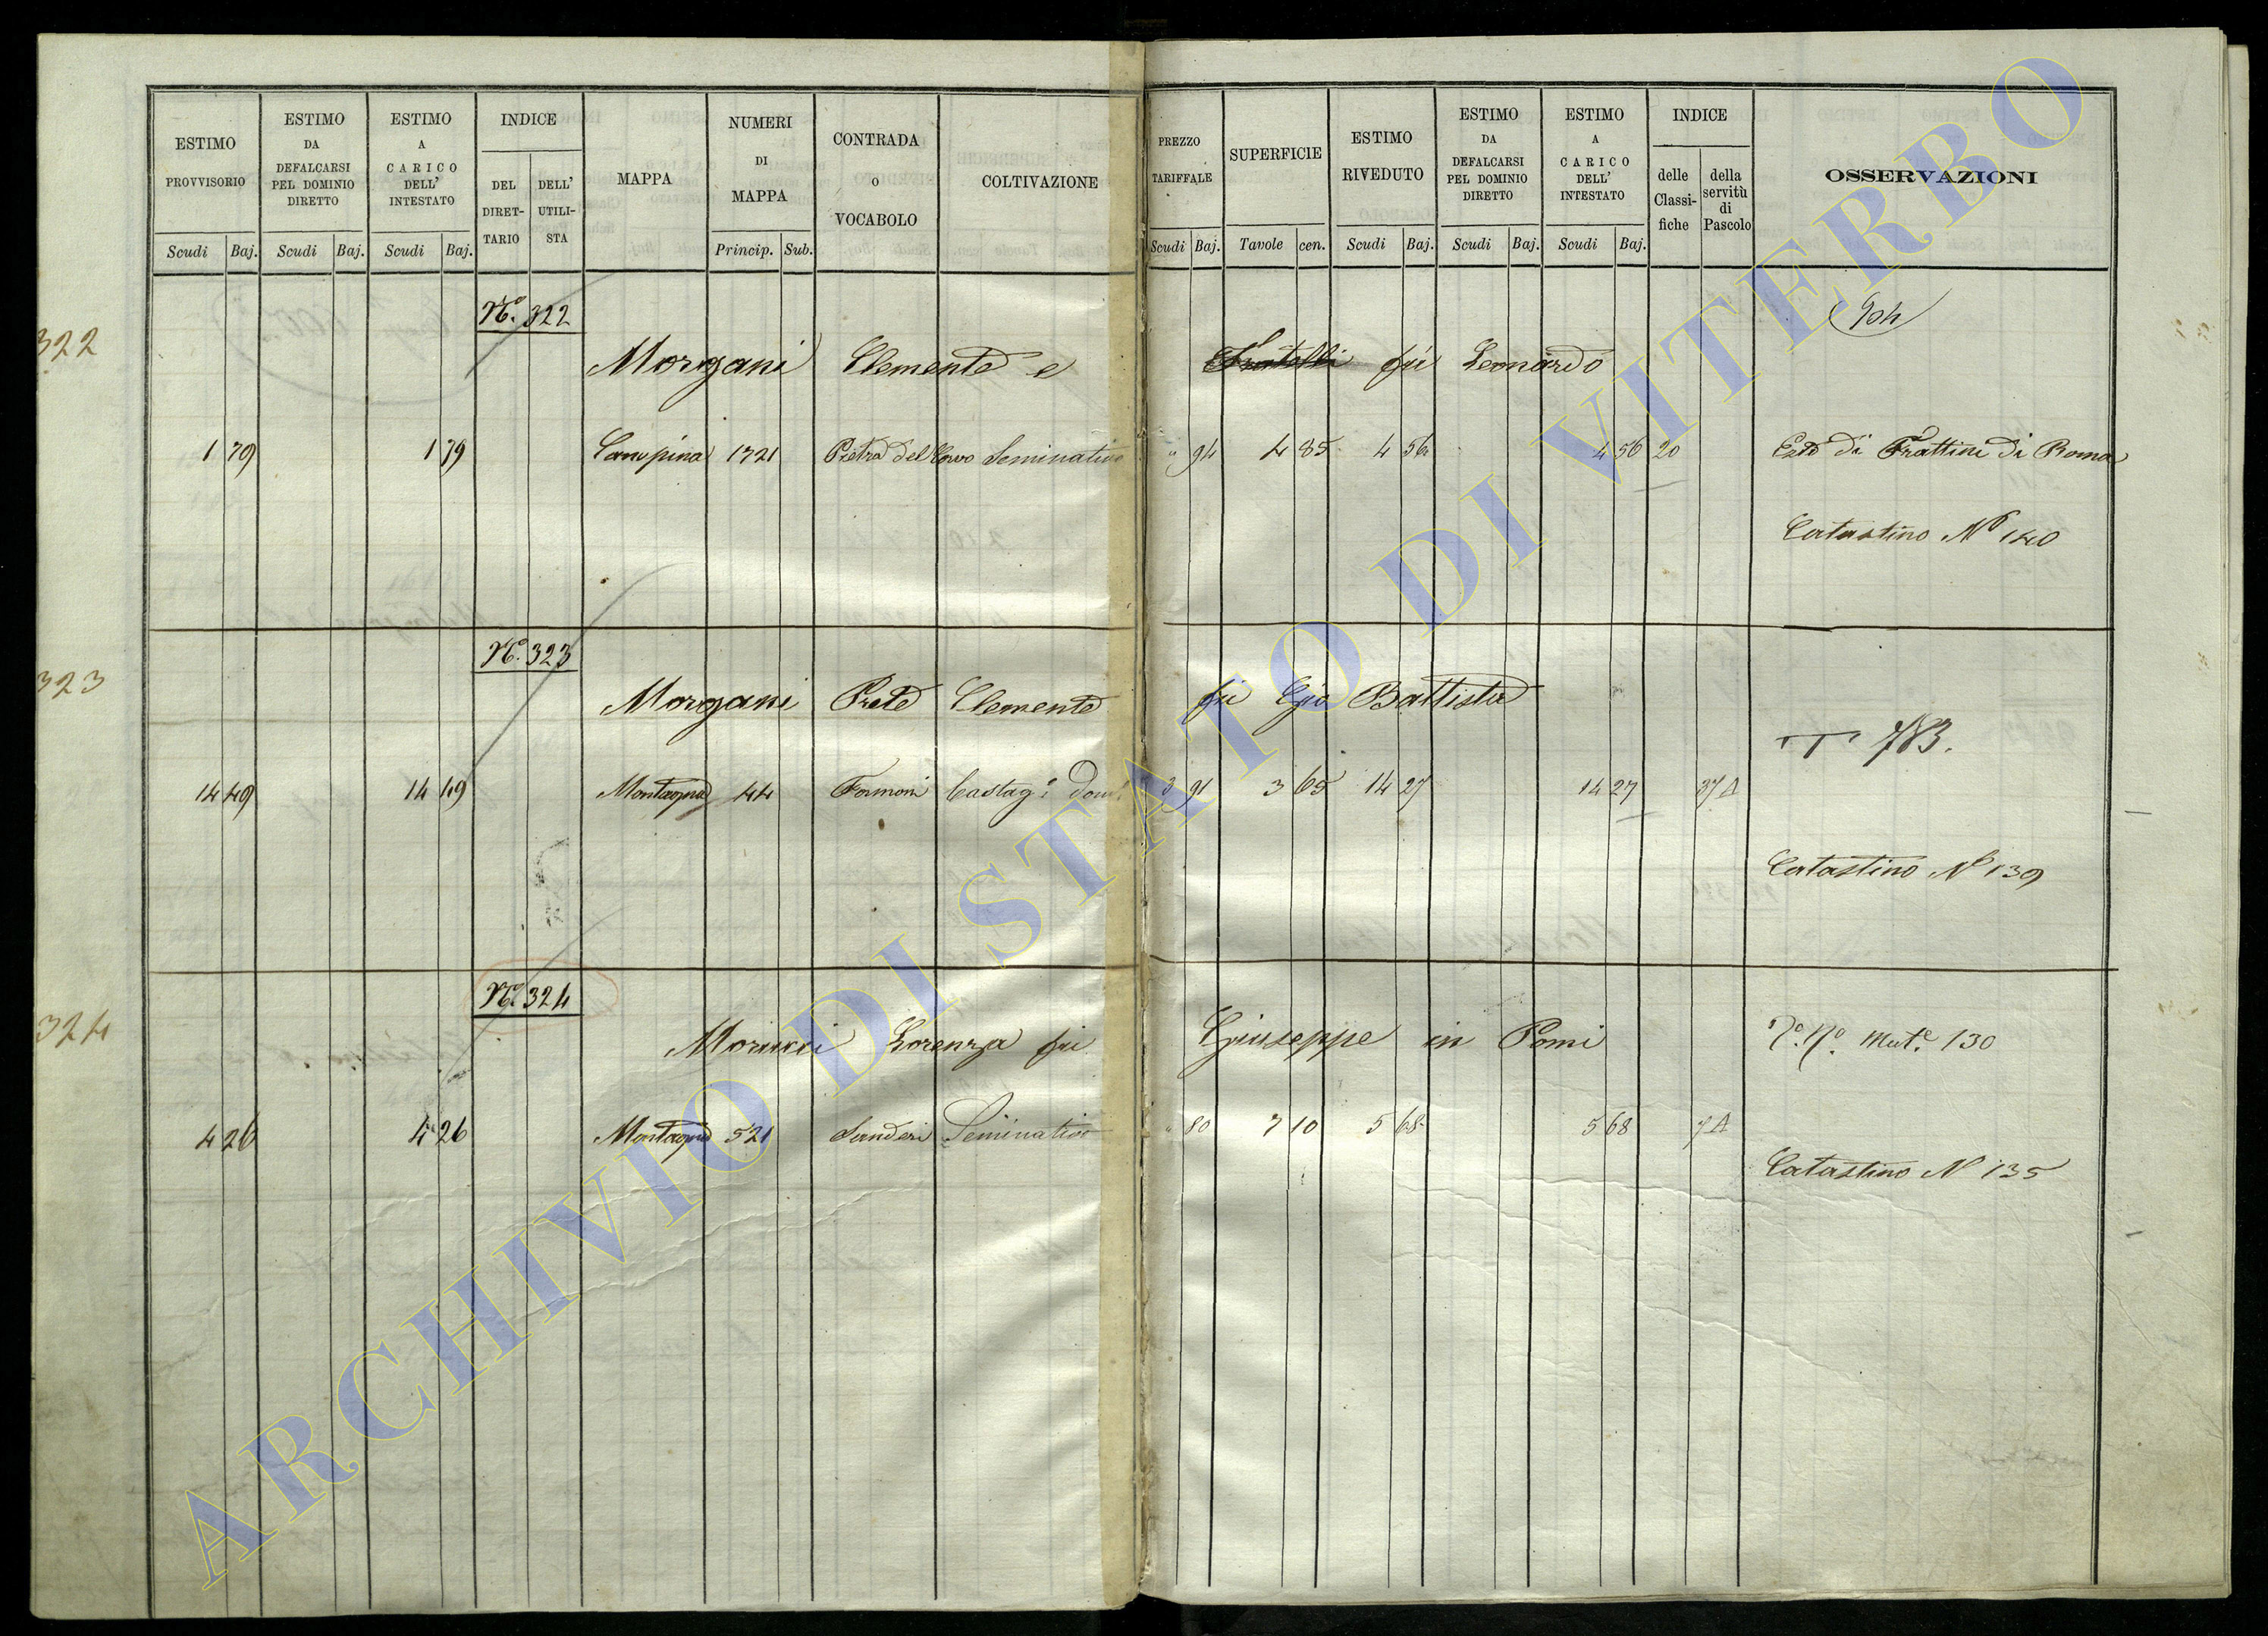 ESTIMO PROVVISORIO
ESTIMO DA DEFALCARSI PEL DOMINIO DIRETTO
ESTIMO A CARICO DELL' INTESTATO
INDICE
DEL DIRET-TARIO
DELL' UTILI-STA
MAPPA
NUMERI DI MAPPA
CONTRADA O VOCABOLO
COLTIVAZIONE
PREZZO TARIFFALE
SUPERFICIE
ESTIMO RIVEDUTO
ESTIMO DA DEFALCARSI PEL DOMINIO DIRETTO
ESTIMO A CARICO DELL' INTESTATO
INDICE
delle Classi-fiche
della servitù di Pascolo
OSSERVAZIONI
Scudi Baj. Scudi Baj. Scudi Baj. Princip. Sub. Scudi Baj. Tavole cen. Scudi Baj. Scudi Baj. Scudi Baj.
322
N.º 322
Morgani Clemente e Fratelli fù Leonardo
1 79 1 79 Canepina 1721 Pietra del Corvo Seminativo " 94 4 85 4 56 4 56 20 di Frattini di Roma
Catastino Nº 140
323
N.º 323
Morgani Prete Clemente fù Gio Battista
783.
14 49 14 49 Montagna 44 Castag.º 3 91 3 65 14 27 14 27 27 A
Catastino Nº 139
324
N.º 324
Morucci Lorenza fù Giuseppe in Pomi
Mut.e 130
4 26 4 26 Montagna 521 Sanderi Seminativo " 80 7 10 5 68 5 68 7 A
Catastino N 135
ARCHIVIO DI STATO DI VITERBO